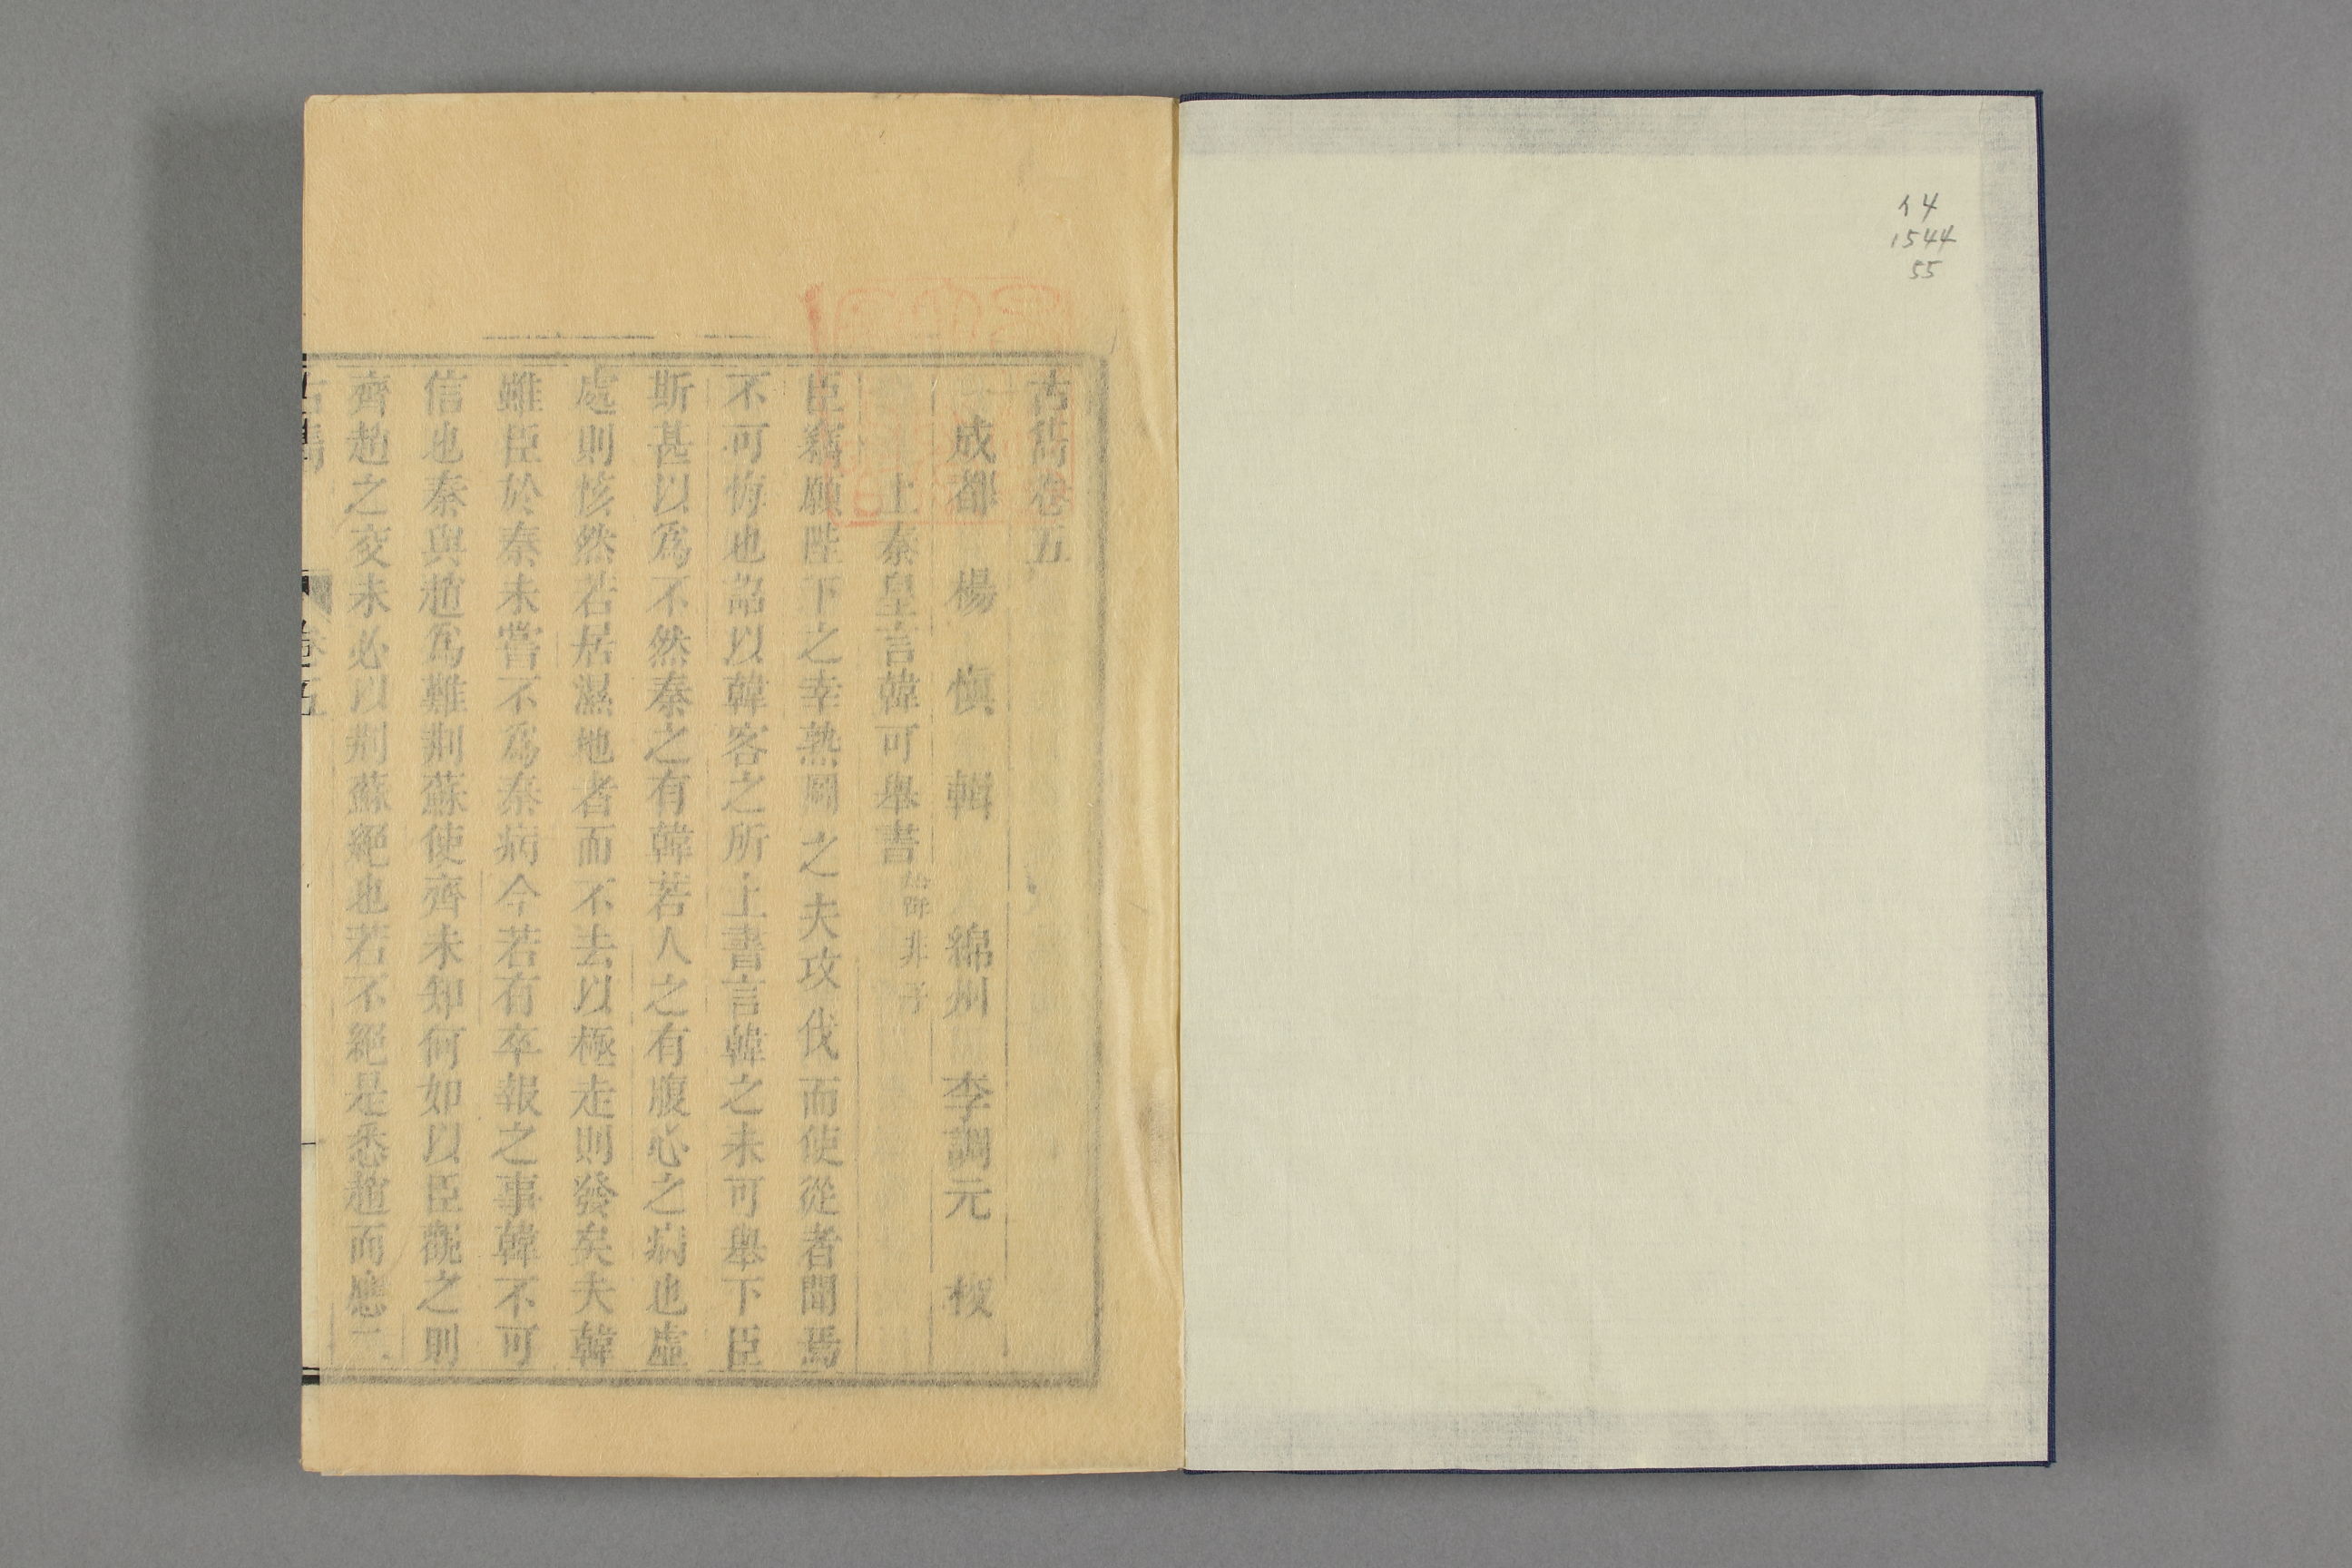 イ4
1544
55
古雋卷五
成都 楊 慎 輯 綿州 李調元 校
上秦皇言韓可舉書
韓非子
臣竊願陛下之幸熟圖之夫攻伐而使從者聞焉
不可悔也詔以韓客之所上書言韓之未可舉下臣
斯甚以爲不然秦之有韓若人之有腹心之病也虛
處則㤥然若居濕地者而不去以極走則發矣夫韓
雖臣於秦未嘗不爲秦病今若有卒報之事韓不可
信也秦與趙爲難荆蘇使齊未知何如以臣觀之則
齊趙之交未必以荆蘇絕也若不絕是悉趙而應二
古雋 卷五